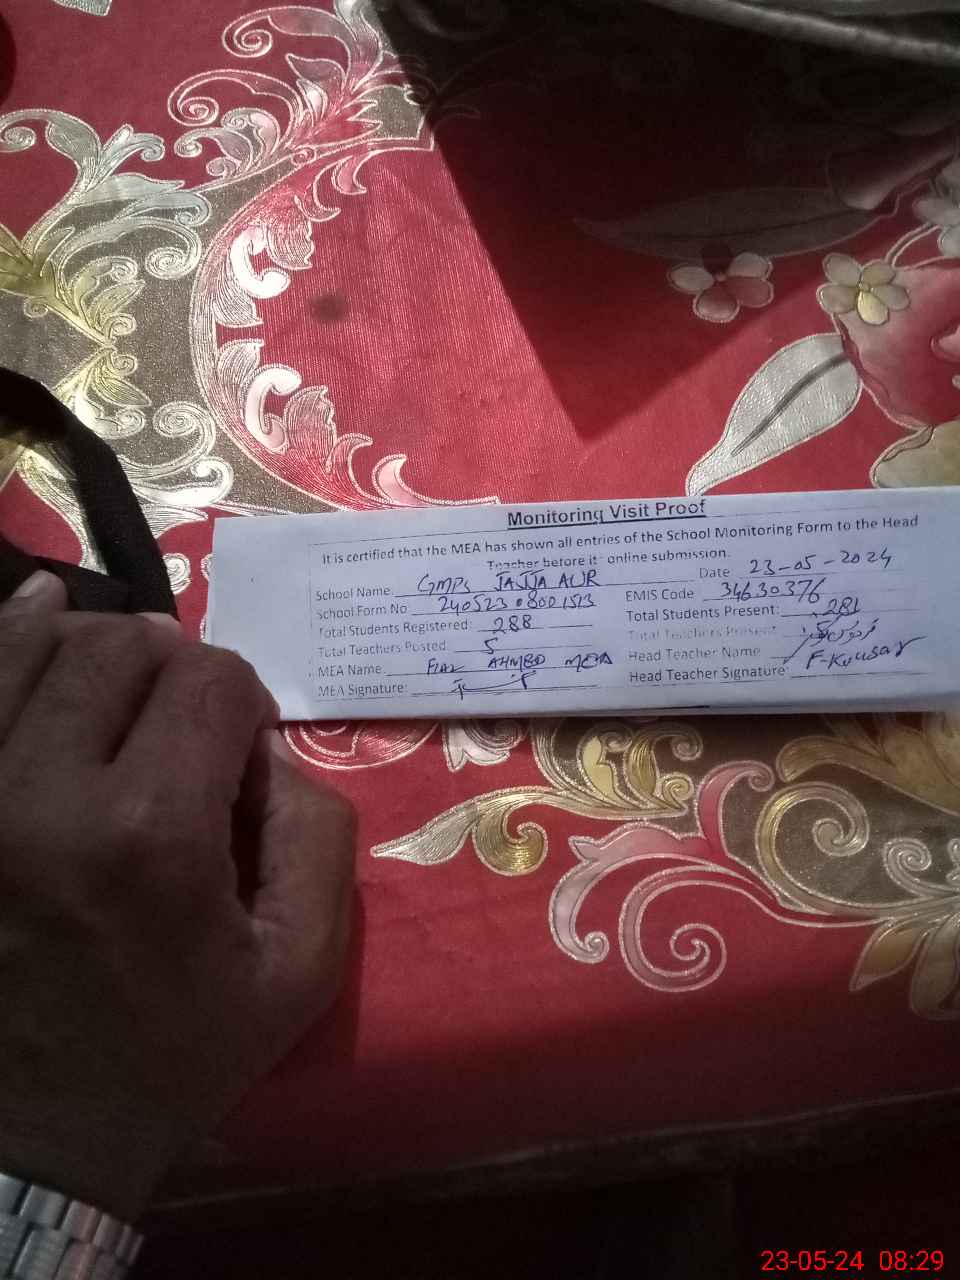 Monitoring Visit Proof
It is certified that the MEA has shown all entries of the School Monitoring Form to the Head
Teacher before it online submission.
School Name. GMPS JAJJA Date 23-05-2024
School Form No 240523 08001513 EMIS Code 34630376
Total Students Registered: 288 Total Students Present: 281
Total Teachers Posted: 5 Total Teachers Present: 5
MEA Name AHMED MEA Head Teacher Name فردوس کوثر
MEA Signature: Head Teacher Signature: F-Kousar
23-05-24 08:29